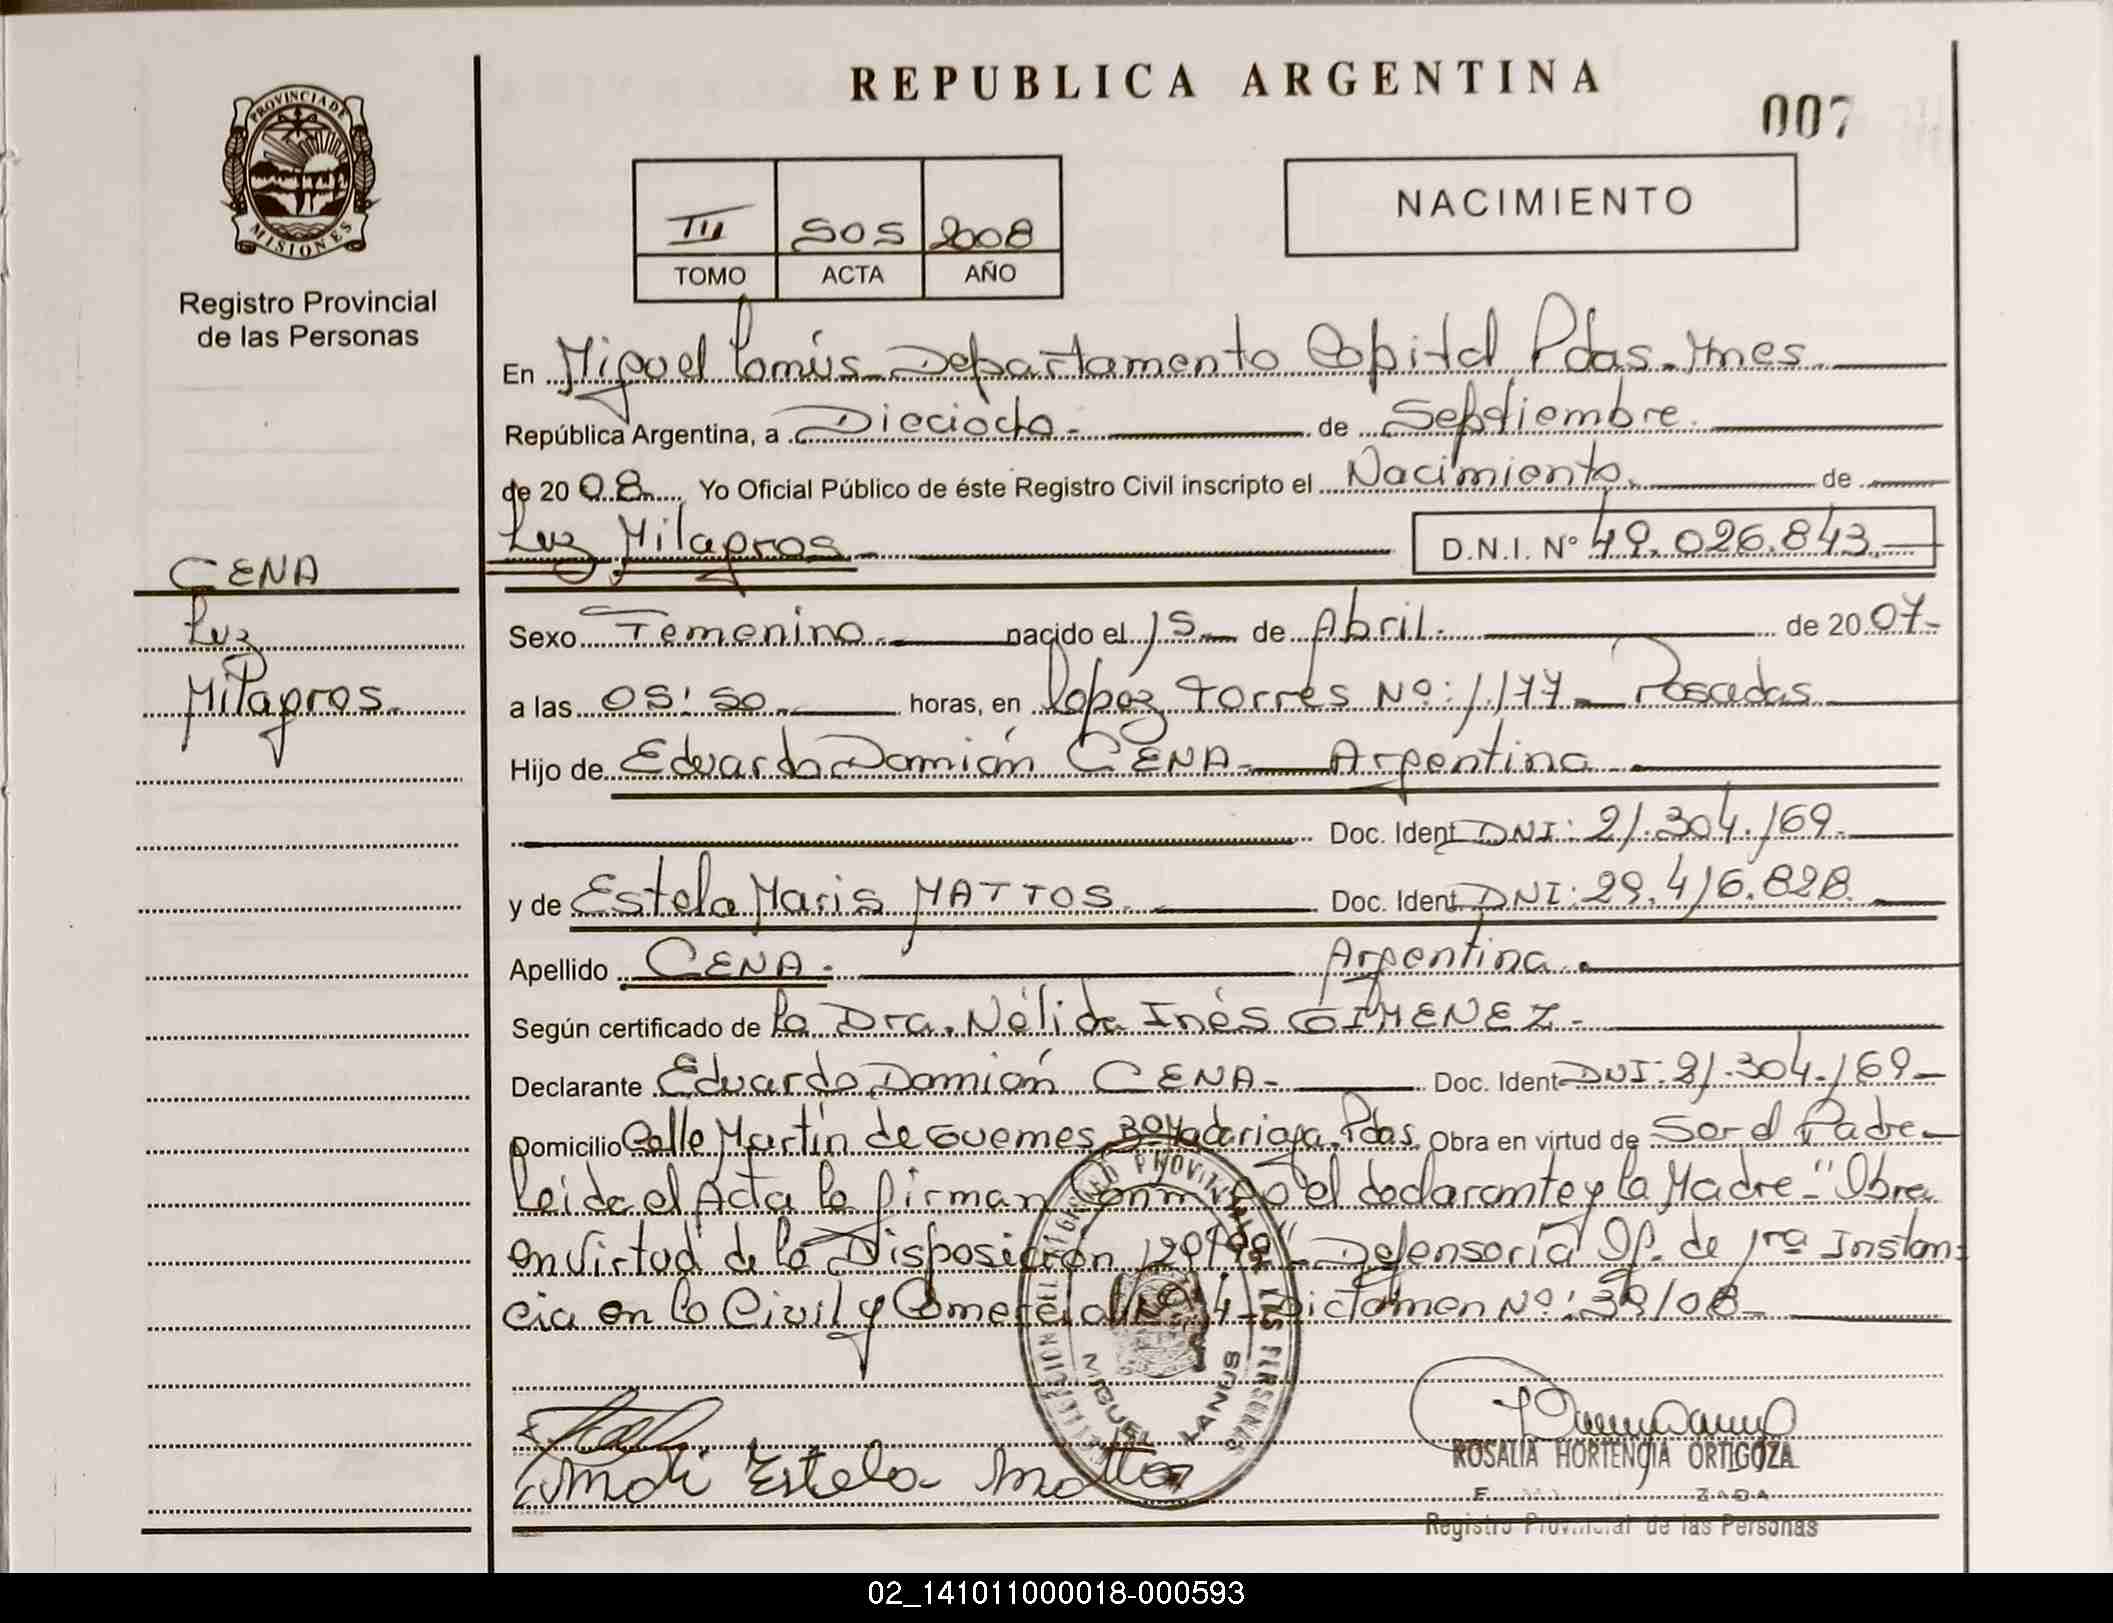 REPUBLICA ARGENTINA
007
PROVINCIA DE
MISIONES
Registro Provincial
de las Personas
III 505 2008
TOMO ACTA AÑO
NACIMIENTO
En Miguel Lanús - Departamento Capital Pdas. Mnes.
República Argentina, a Dieciocho - de Septiembre.
de 2008. Yo Oficial Público de éste Registro Civil inscripto el Nacimiento. de
Luz Milagros D.N.I. Nº 49.026.843.
CENA
Luz
Milagros
Sexo Femenino. nacido el 15 de Abril. de 2007-
a las 05:50 horas, en López Torres Nº: 1.177 - Posadas
Hijo de Eduardo Damián CENA - Argentina
Doc. Ident DNI: 21.304.169.
y de Estela Maris MATTOS. Doc. Ident DNI: 29.416.828.
Apellido CENA. Argentina.
Según certificado de la Dra. Nélida Inés GIMENEZ -
Declarante Eduardo Damián CENA - Doc. Ident DNI: 21.304.169
Domicilio Calle Martín de Guemes Bº Madariaga. Pdas. Obra en virtud de Ser el Padre
Leida el Acta la firman Conmigo el declarante y la Madre - "Obra
en virtud de la Disposición - Defensoría Of. de 1ra Instan-
cia en lo Civil y Comercial Nº 4 - Dictamen Nº: 39/08
MIGUEL LANUS
Estela Mattos
ROSALIA HORTENCIA ORTIGOZA
Registro Provincial de las Personas
02_141011000018-000593